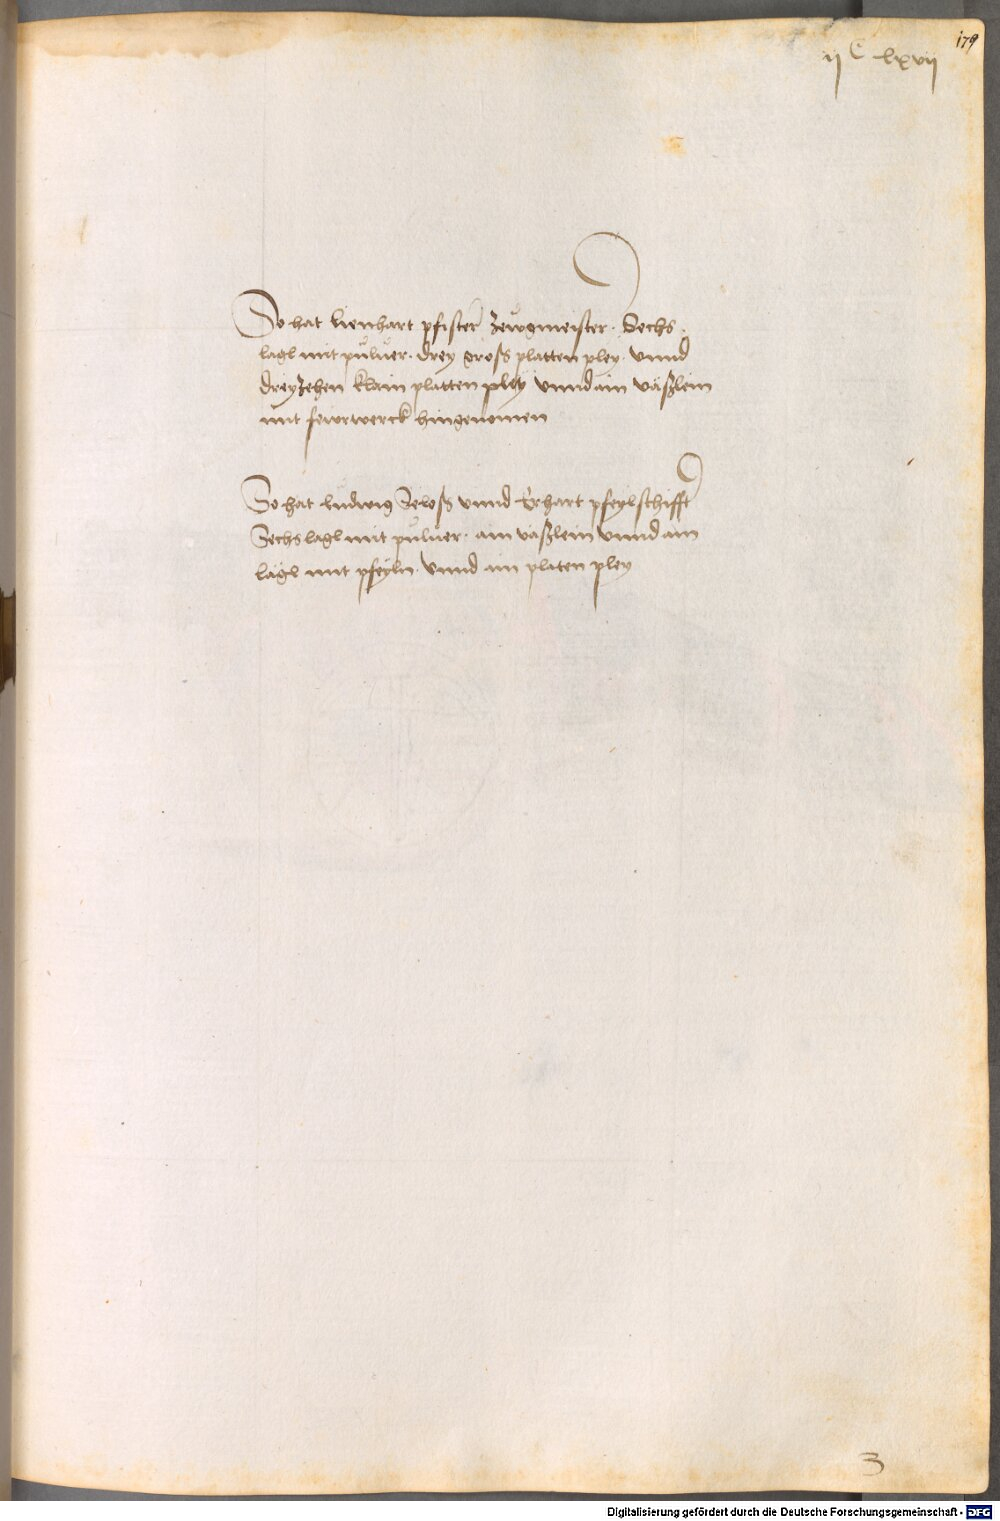 179
ij C lxvij
So hat Lienhart pfister Zewgmeister. Sechs
lagl mit puluer. drey gross platten pley. vnnd
dreyzehen klain platten pley vnnd ain väßlein
mit fewrwerck hingenomen
So hat Ludwig Seloß vnnd Erhart pfeylschifft
Sechs lagl mit puluer. ain väßlein vnnd ain
lägl mit pfeyln. Vnnd ain platen pley
3
Digitalisierung gefördert durch die Deutsche Forschungsgemeinschaft - DFG